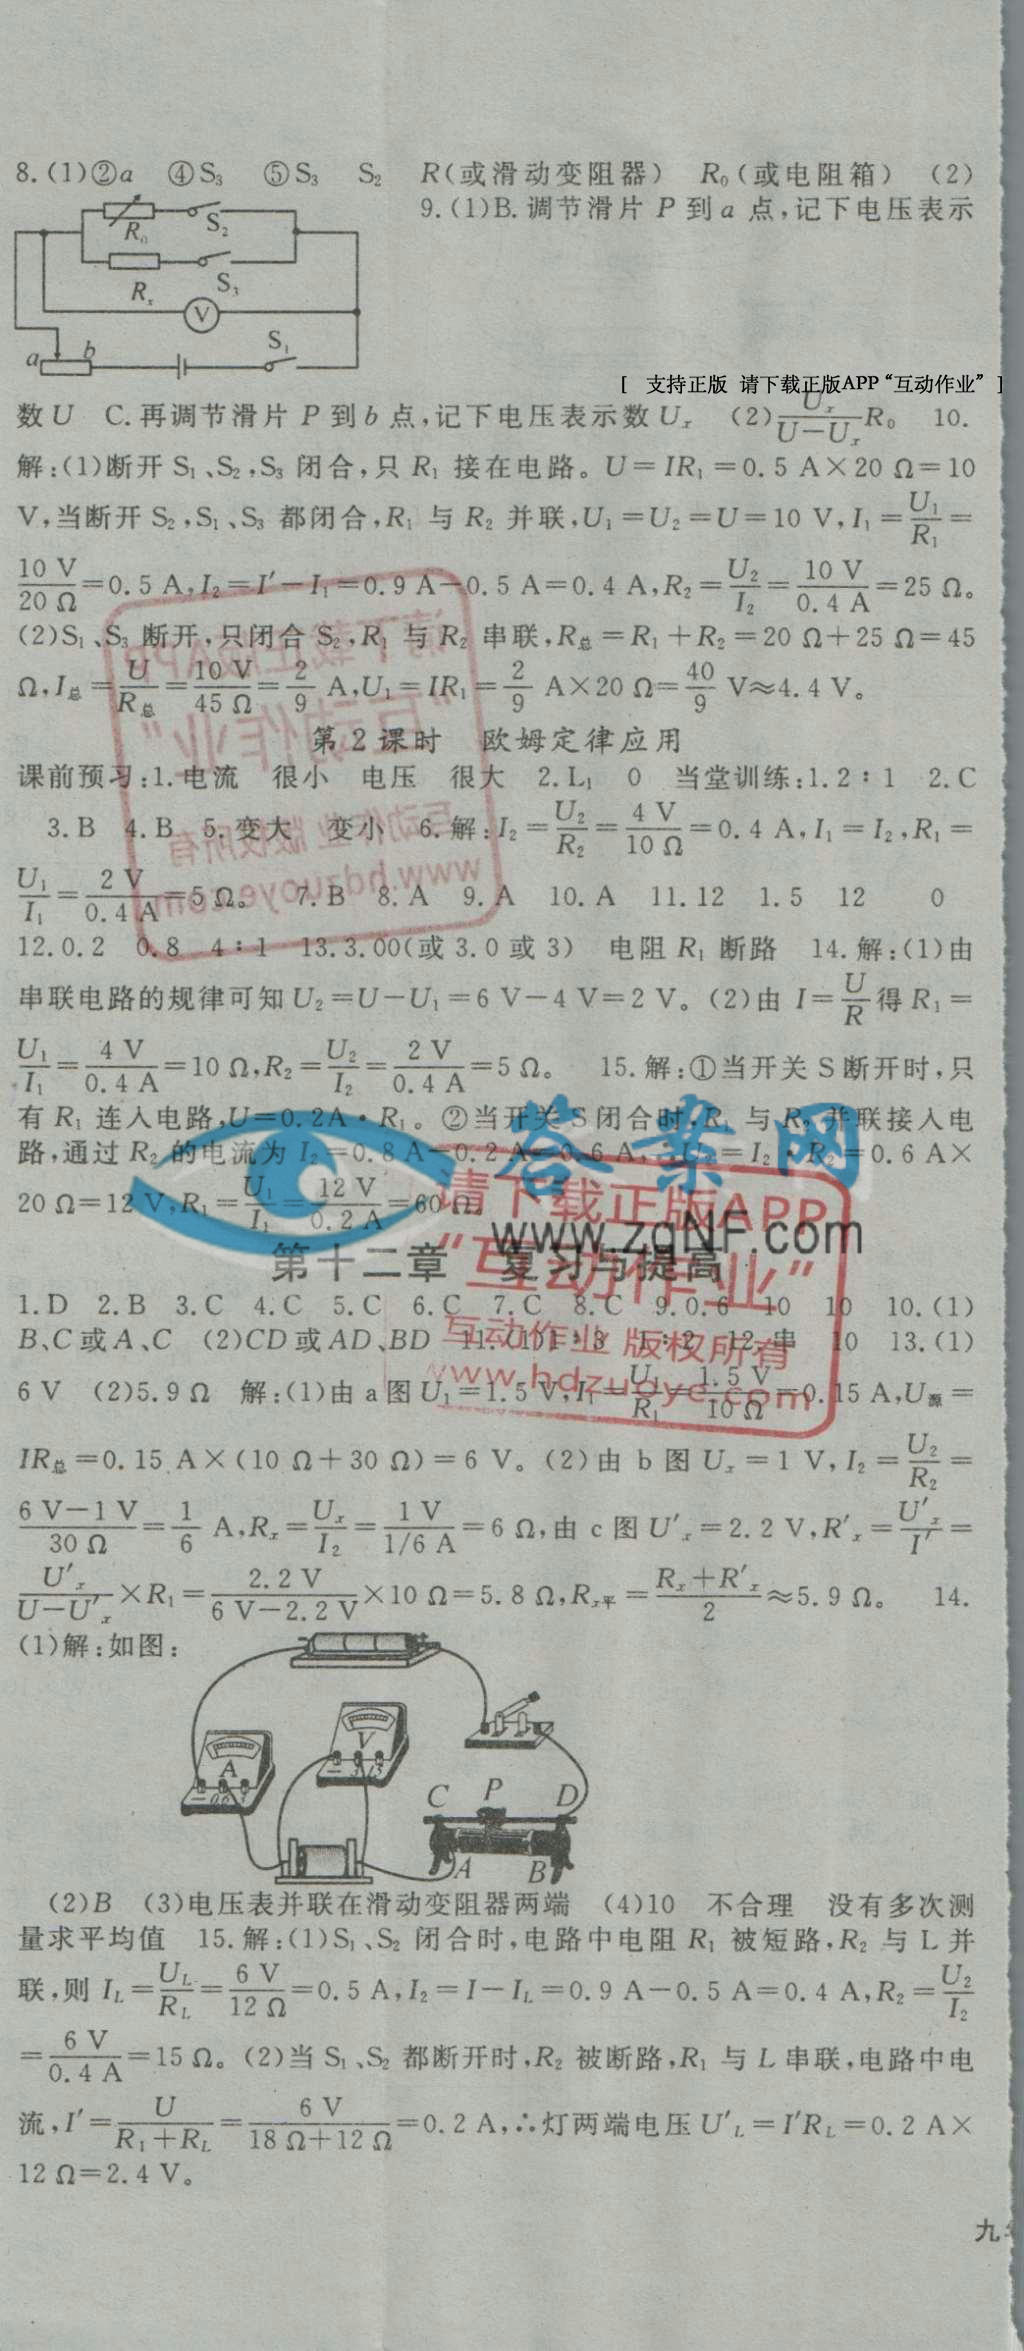 8.(1)②a ④S₃ ⑤S₃ S₂ R(或滑动变阻器) R₀(或电阻箱) (2)
R₀ S₂
Rₓ S₃
V
a b S₁
9.(1)B.调节滑片 P 到 a 点,记下电压表示
[ 支持正版 请下载正版APP“互动作业” ]
数U C.再调节滑片 P 到 b 点,记下电压表示数 Uₓ (2)Uₓ/(U-Uₓ)R₀ 10.
解:(1)断开 S₁、S₂,S₃ 闭合,只 R₁ 接在电路。U=IR₁=0.5 A×20 Ω=10
V,当断开 S₂,S₁、S₃ 都闭合,R₁ 与 R₂ 并联,U₁=U₂=U=10 V,I₁=U₁/R₁=
10 V/20 Ω=0.5 A,I₂=I′-I₁=0.9 A-0.5 A=0.4 A,R₂=U₂/I₂=10 V/0.4 A=25 Ω。
(2)S₁、S₃ 断开,只闭合 S₂,R₁ 与 R₂ 串联,R总=R₁+R₂=20 Ω+25 Ω=45
Ω,I总=U/R总=10 V/45 Ω=2/9 A,U₁=IR₁=2/9 A×20 Ω=40/9 V≈4.4 V。
第2课时 欧姆定律应用
课前预习:1.电流 很小 电压 很大 2.L₁ 0 当堂训练:1.2∶1 2.C
3.B 4.B 5.变大 变小 6.解:I₂=U₂/R₂=4 V/10 Ω=0.4 A,I₁=I₂,R₁=
U₁/I₁=2 V/0.4 A=5 Ω。 7.B 8.A 9.A 10.A 11.12 1.5 12 0
12.0.2 0.8 4∶1 13.3.00(或3.0或3) 电阻 R₁ 断路 14.解:(1)由
串联电路的规律可知 U₂=U-U₁=6 V-4 V=2 V。(2)由 I=U/R得 R₁=
U₁/I₁=4 V/0.4 A=10 Ω,R₂=U₂/I₂=2 V/0.4 A=5 Ω。 15.解:①当开关 S 断开时,只
有 R₁ 连入电路,U=0.2A·R₁。②当开关 S 闭合时,R₁ 与 R₂ 并联接入电
路,通过 R₂ 的电流为 I₂=0.8A-0.2A=0.6A, =I₂·R₂=0.6 A×
20 Ω=12 V,R₁=U₁/I₁=12 V/0.2 A=60 Ω。
答案网
www.zqNF.com
请下载正版APP
“互动作业”
互动作业 版权所有
www.hdzuoye.com
第十二章 复习与提高
1.D 2.B 3.C 4.C 5.C 6.C 7.C 8.C 9.0.6 10 10 10.(1)
B、C或A、C (2)CD或AD、BD 11.(1)1∶3 1∶2 12.串 10 13.(1)
6 V (2)5.9 Ω 解:(1)由 a 图 U₁=1.5 V,I₁=U₁/R₁=1.5 V/10 Ω=0.15 A,U源=
IR总=0.15 A×(10 Ω+30 Ω)=6 V。(2)由 b 图 Uₓ=1 V,I₂=U₂/R₂=
6 V-1 V/30 Ω=1/6 A,Rₓ=Uₓ/I₂=1 V/1/6 A=6 Ω,由 c 图 U′ₓ=2.2 V,R′ₓ=U′ₓ/I′=
U′ₓ/(U-U′ₓ)×R₁=2.2 V/(6 V-2.2 V)×10 Ω=5.8 Ω,Rₓ平=(Rₓ+R′ₓ)/2≈5.9 Ω。 14.
(1)解:如图:
A
- 0.6 3
V
- 3 15
C P D
A B
(2)B (3)电压表并联在滑动变阻器两端 (4)10 不合理 没有多次测
量求平均值 15.解:(1)S₁、S₂ 闭合时,电路中电阻 R₁ 被短路,R₂ 与 L 并
联,则 I_L=U_L/R_L=6 V/12 Ω=0.5 A,I₂=I-I_L=0.9 A-0.5 A=0.4 A,R₂=U₂/I₂
=6 V/0.4 A=15 Ω。(2)当 S₁、S₂ 都断开时,R₂ 被断路,R₁ 与 L 串联,电路中电
流,I′=U/(R₁+R_L)=6 V/(18 Ω+12 Ω)=0.2 A,∴灯两端电压 U′_L=I′R_L=0.2 A×
12 Ω=2.4 V。
九